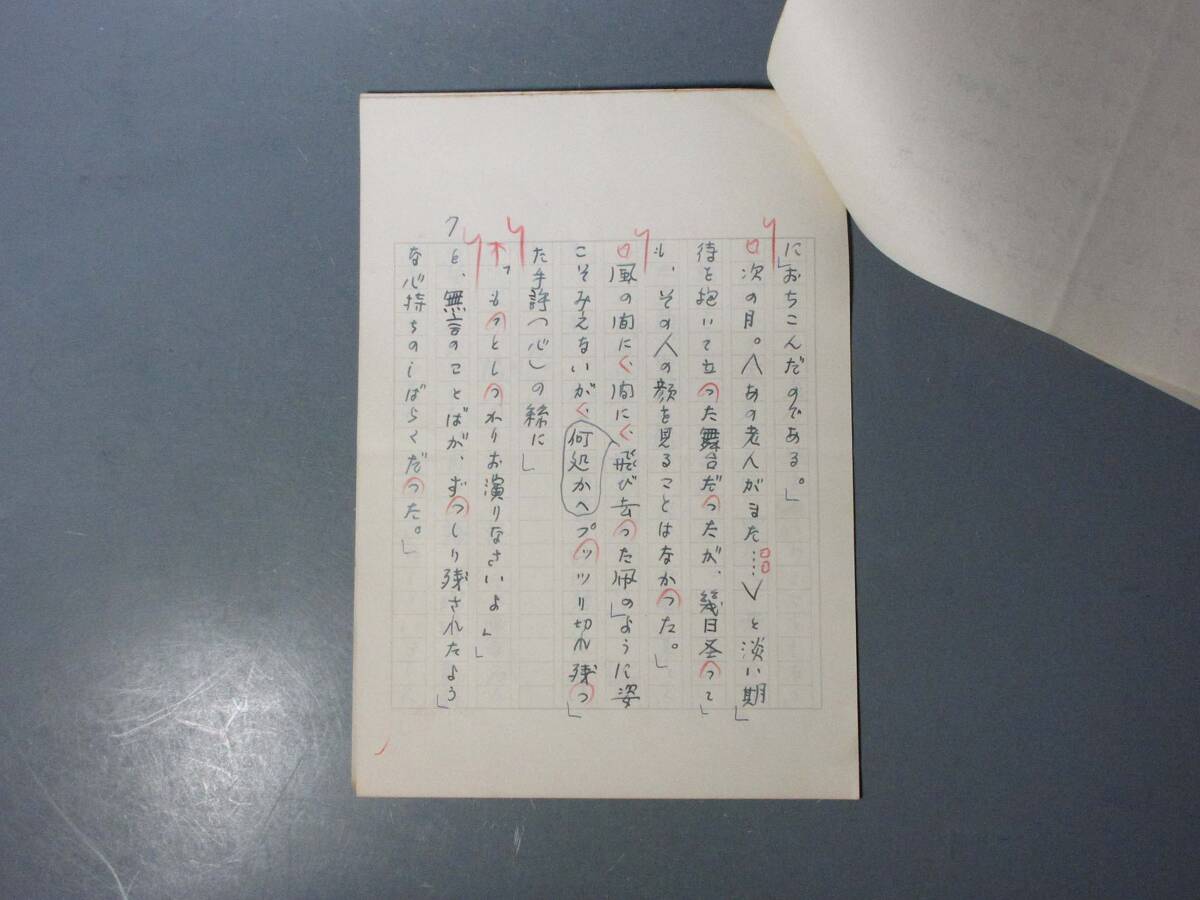 に「おちこんだのである。」
次の月。〈あの老人がまた……〉と淡い期
待を抱いて立った舞台だったが、幾日経って
も、その人の顔を見ることはなかった。」
風の間に〱間に〱、飛び去った凧の」ように姿
こそみえないが〱、何処かへプッツリ切れ残っ
た手許(心)の絲に」
「もっとしっかりお演りなさいよ」」
と、無言のことばが、ずっしり残されたよう
な心持ちのしばらくだった。」